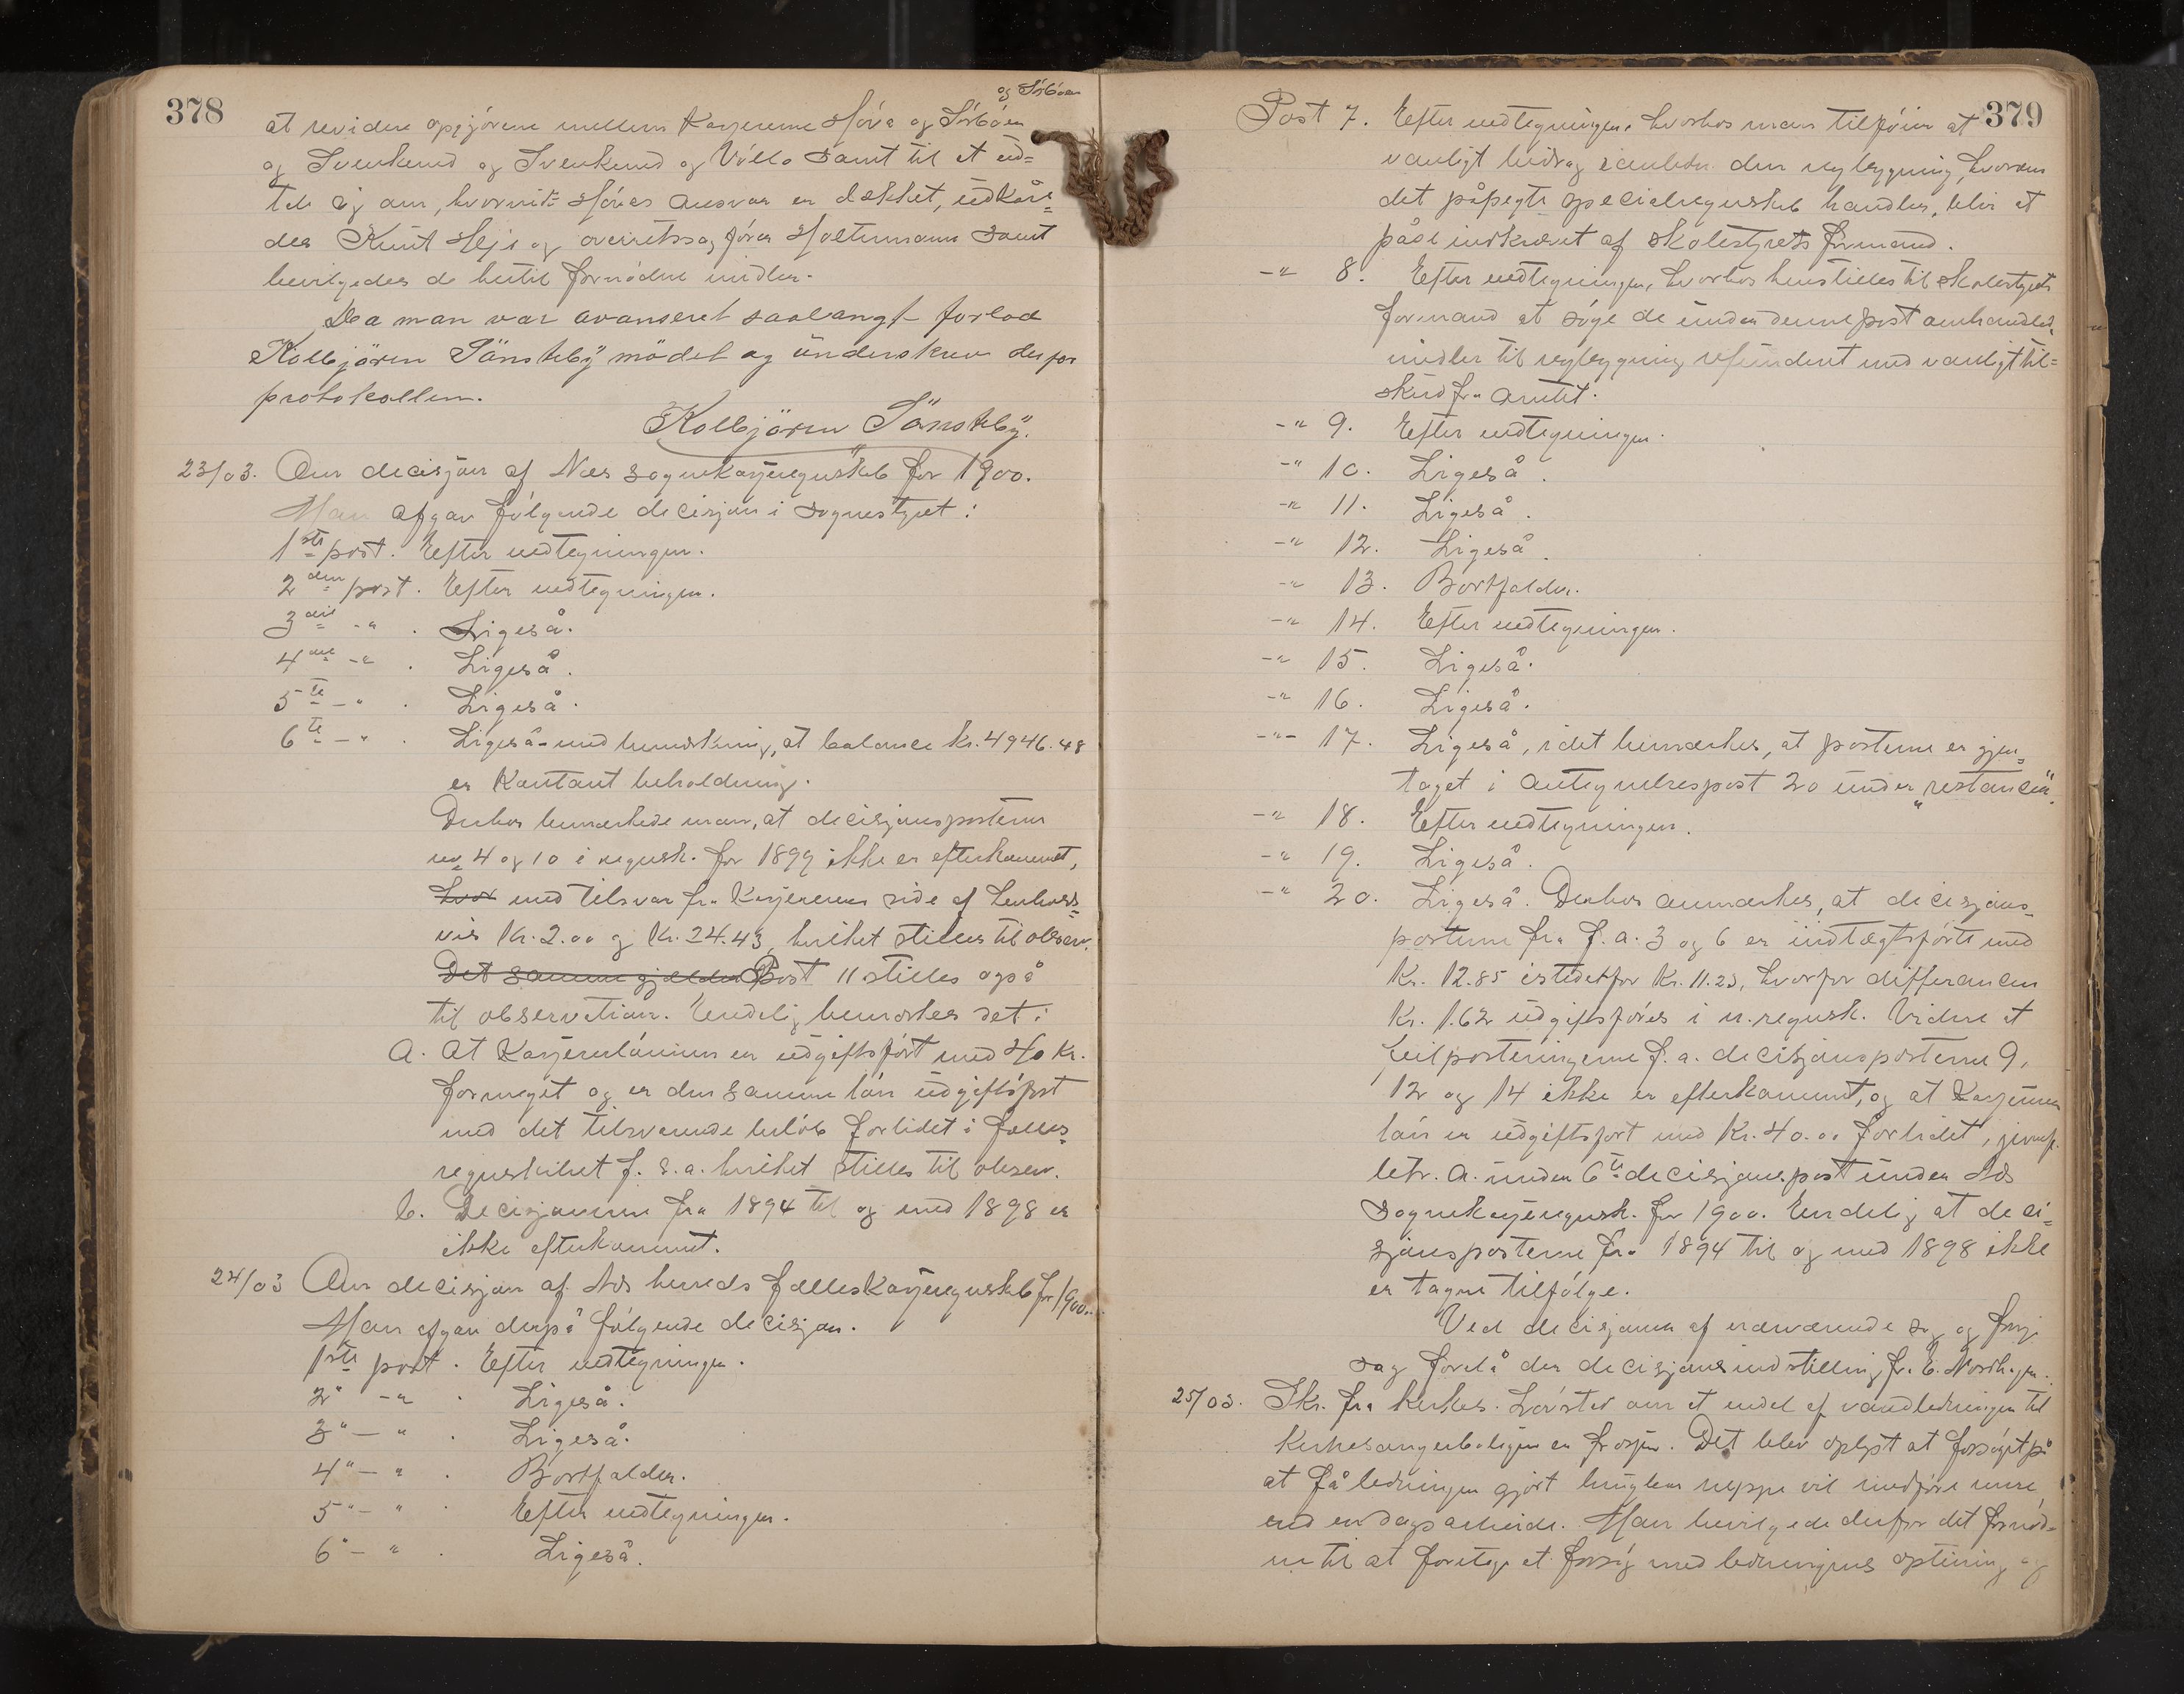 378
og Sörböen
at revidere opgjörene mellem Kasjererne Höva og Sörböen
og Svenkerud og Svenkerud og Völlo samt til at ud=
tale sig om, hvorvidt Hövas ansvar er dækket, udkåre=
des Knut Heje og overretssagförer Holtermann samt
bevilgedes de hertil fornödne midler.
Da man var avanseret saalangt forlod
Kolbjören Sönsteby mödet og underskrev derfor
protokollen.
Kolbjören Sönsteby.
23/03. Om decisjon af Næs sognekasjeregnskab for 1900.
Man afgav fölgende decisjon i sognestyret:
1ste post. Efter indtegningen.
2den post. Efter indtegningen.
3die -"- . Ligeså.
4de -"- . Ligeså.
5te -"- . Ligeså.
6te -"- . Ligeså - med bemærkning, at balance kr. 4946.48
er kontant beholdning.
Derhos bemærkede man, at decisjonsposterne
no 4 og 10 i regnsk. for 1899 ikke er efterkommet,
hvor med tilsvar fra kasjererens side af henholds=
vis kr. 2.00 og kr. 24.43, hvilket stilles til observ.
Det samme gjælder Post 11 stilles også
til observation. Endelig bemærkes det:
a. at Kasjererlönnen er udgiftsfört med 40 kr.
formeget og er den samme lön udgiftsfört
med det tilsvarende belöb forlidet i fælles=
regnskabet f. s. a. hvilket stilles til observ.
b. Decisjonerne fra 1894 til og med 1898 er
ikke efterkommet.
24/03 Om decisjon af Næs herreds fælleskasjeregnskab for 1900.
Man afgav derpå fölgende decisjon.
1ste post. Efter indtegningen.
2" -" . Ligeså.
3" -" . Ligeså.
4" -" . Bortfalder.
5" -" . Efter indtegningen.
6" -" . Ligeså.
379
Post 7. Efter indtegningen, hvorhos man tilföier at
vanligt bidrag i anledn. den nybygning, hvorom
det påpegte specialregnskab handler, blir at
påse indkrævet af skolestyrets formand.
-" 8. Efter indtegningen, hvorhos henstilles til skolestyrets
formand at söge de under denne post omhandlede
midler til nybygning refunderet med vanligt til=
skud fra amtet.
-" 9. Efter indtegningen.
-" 10. Ligeså.
-" 11. Ligeså.
-" 12. Ligeså.
-" 13. Bortfalder.
-" 14. Efter indtegningen.
-" 15. Ligeså.
-" 16. Ligeså.
-"- 17. Ligeså, idet bemærkes, at posterne er gjen=
taget i antegnelsespost 20 under „restancer".
-" 18. Efter indtegningen.
-" 19. Ligeså.
-" 20. Ligeså. Derhos anmærkes, at decisjons=
posterne fra f. a. 3 og 6 er indtægtsförte med
kr. 12.85 istedetfor kr. 11.23, hvorfor differancen
kr. 1.62 udgiftsföres i n. regnsk. Videre at
feilposteringerne f. a. decisjonsposterne 9,
12 og 14 ikke er efterkommet, og at Kasjererens
lön er udgiftsfört med kr. 40.00 forlidet, jvnf.
letr. a. under 6te decisjonspost under Næs
sognekasjeregnsk. for 1900. Endelig at deci=
sjonsposterne fra 1894 til og med 1898 ikke
er tagne tilfölge.
Ved decisjonen af nærværende sag og forrige
sag forelå der decisjonsindstilling fra E. Nordhagen.
25/03. Skr. fra kirkes. Lövstad om at endel af vandledningen til
Kirkesangerboligen er frosjen. Det blev oplyst at forsöget på
at få ledningen gjort brugbar neppe vil medföre mere
end en dags arbeide. Man bevilgede derfor det fornöd=
ne til at foretage et forsög med ledningens optining og